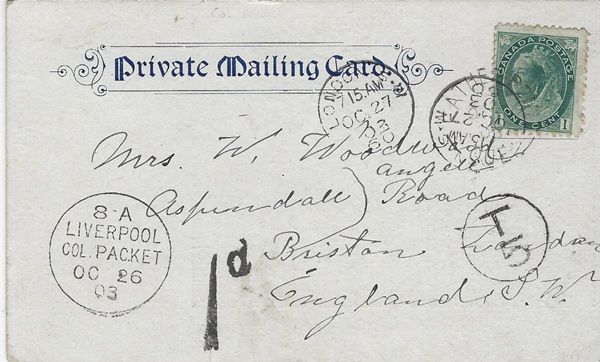 Private Mailing Card
CANADA POSTAGE
ONE CENT
1
LONDON. S.W
7 15 AM
OC 27
03
Mrs. W. Woodw
angell
Aspendale) Road
Brixton London
England, S.W.
8-A
LIVERPOOL
COL. PACKET
OC 26
03
1d
T
5